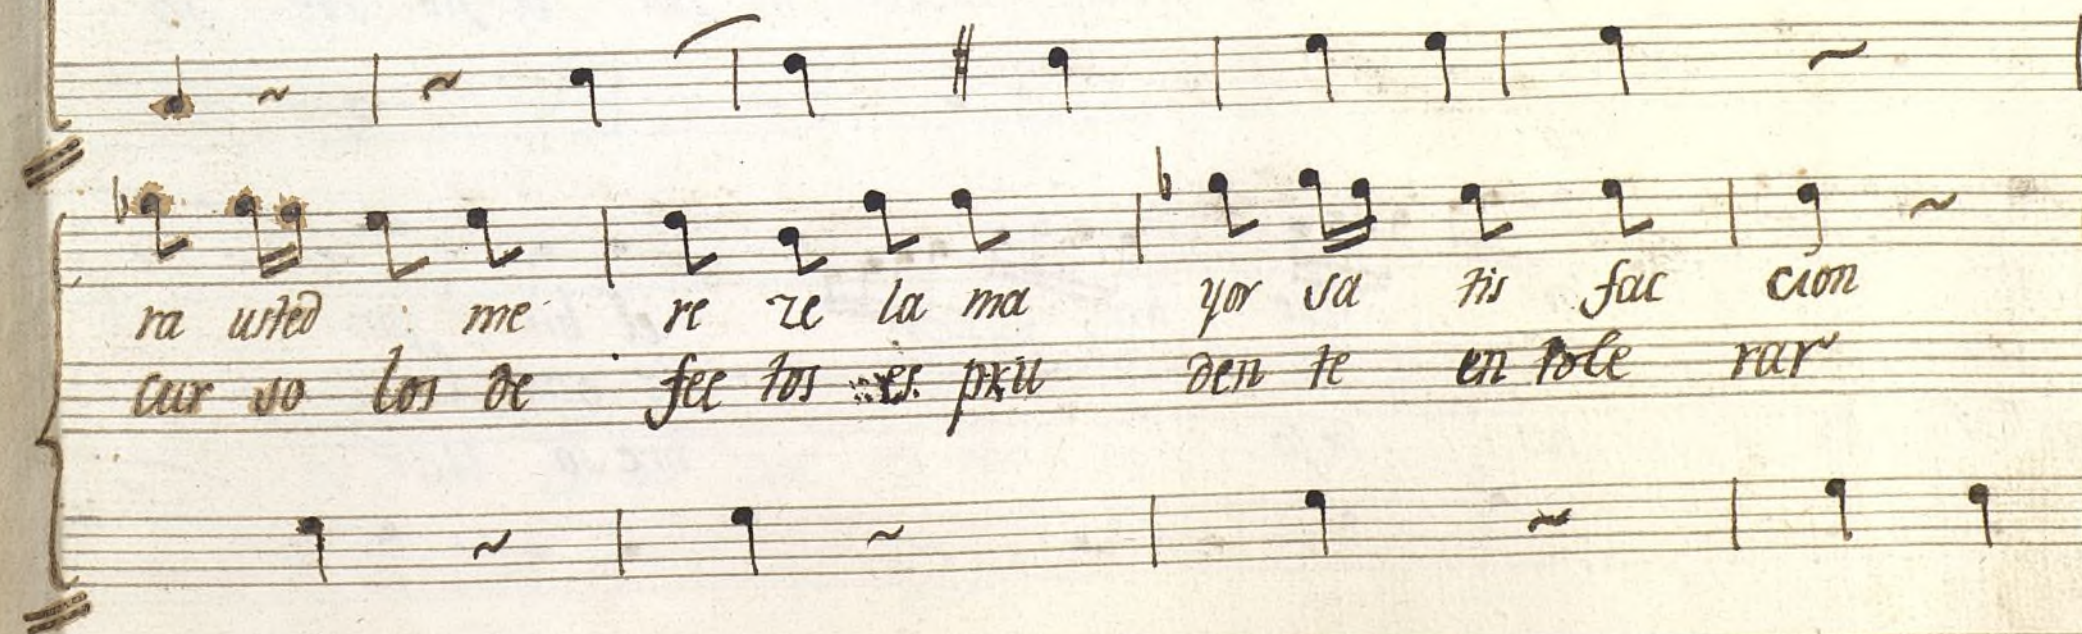 ra usted me re ze la ma yor sa tis fac cion
cur so los de fee tos es pru den te en tole rar